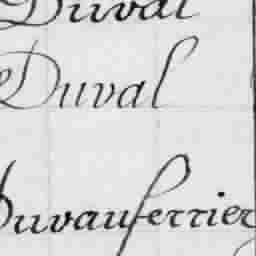 Duval
Duval
Duvauferrier